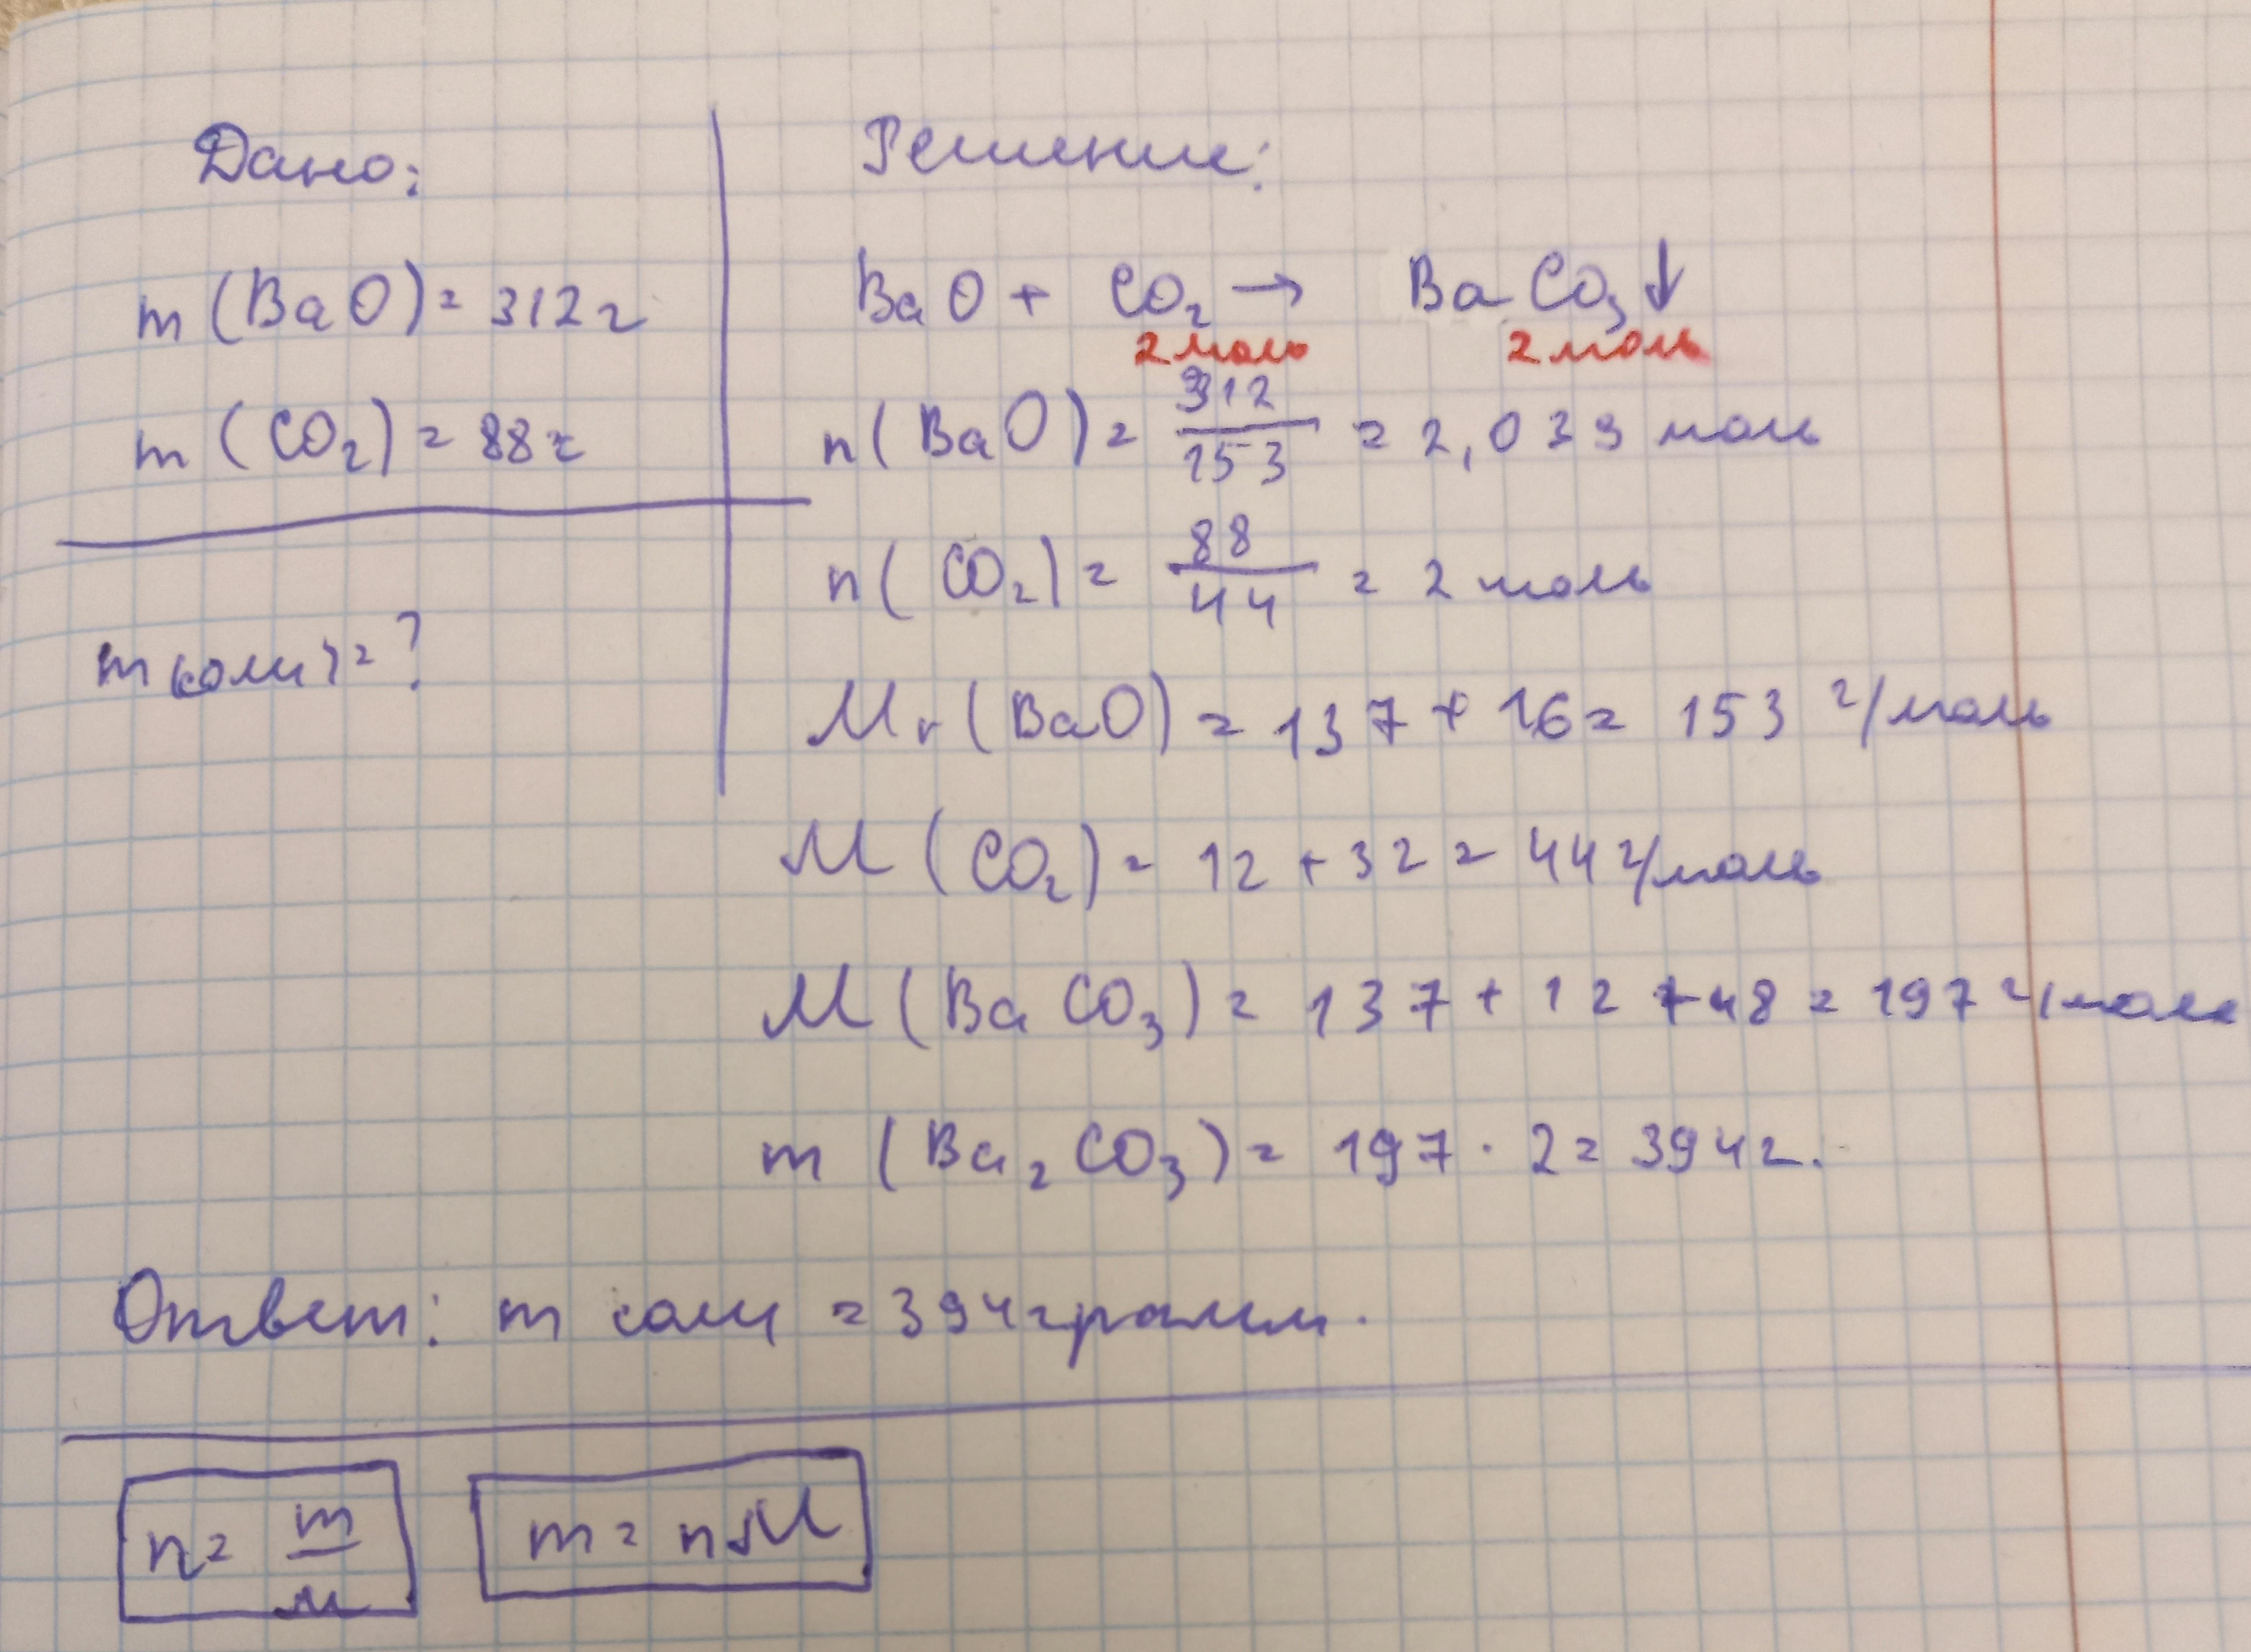 Дано:
m (BaO) = 312 г
m (CO₂) = 88 г
m соли) = ?
Решение:
BaO + CO₂ → BaCO₃↓
2 моль 2 моль
n (BaO) = 312/153 = 2,039 моль
n (CO₂) = 88/44 = 2 моль
Mr (BaO) = 137 + 16 = 153 г/моль
M (CO₂) = 12 + 32 = 44 г/моль
M (BaCO₃) = 137 + 12 + 48 = 197 г/моль
m (Ba₂CO₃) = 197 · 2 = 394 г.
Ответ: m соли = 394 грамм.
n = m/M
m = n·M